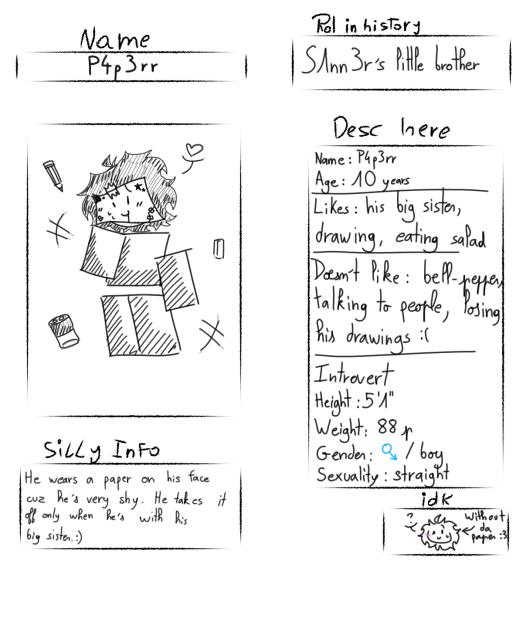 Name
P4p3rr
Rol in history
S1nn3r's little brother
Desc here
Name: P4p3rr
Age: 10 years
Likes: his big sister,
drawing, eating salad
Doesn't like: bell-pepper,
talking to people, losing
his drawings :(
Introvert
Height: 5'1"
Weight: 88 p
Gender: ♂ / boy
Sexuality: straight
Silly Info
He wears a paper on his face
cuz he's very shy. He takes it
off only when he's with his
big sister. :)
idk
?
Without
da
paper :3